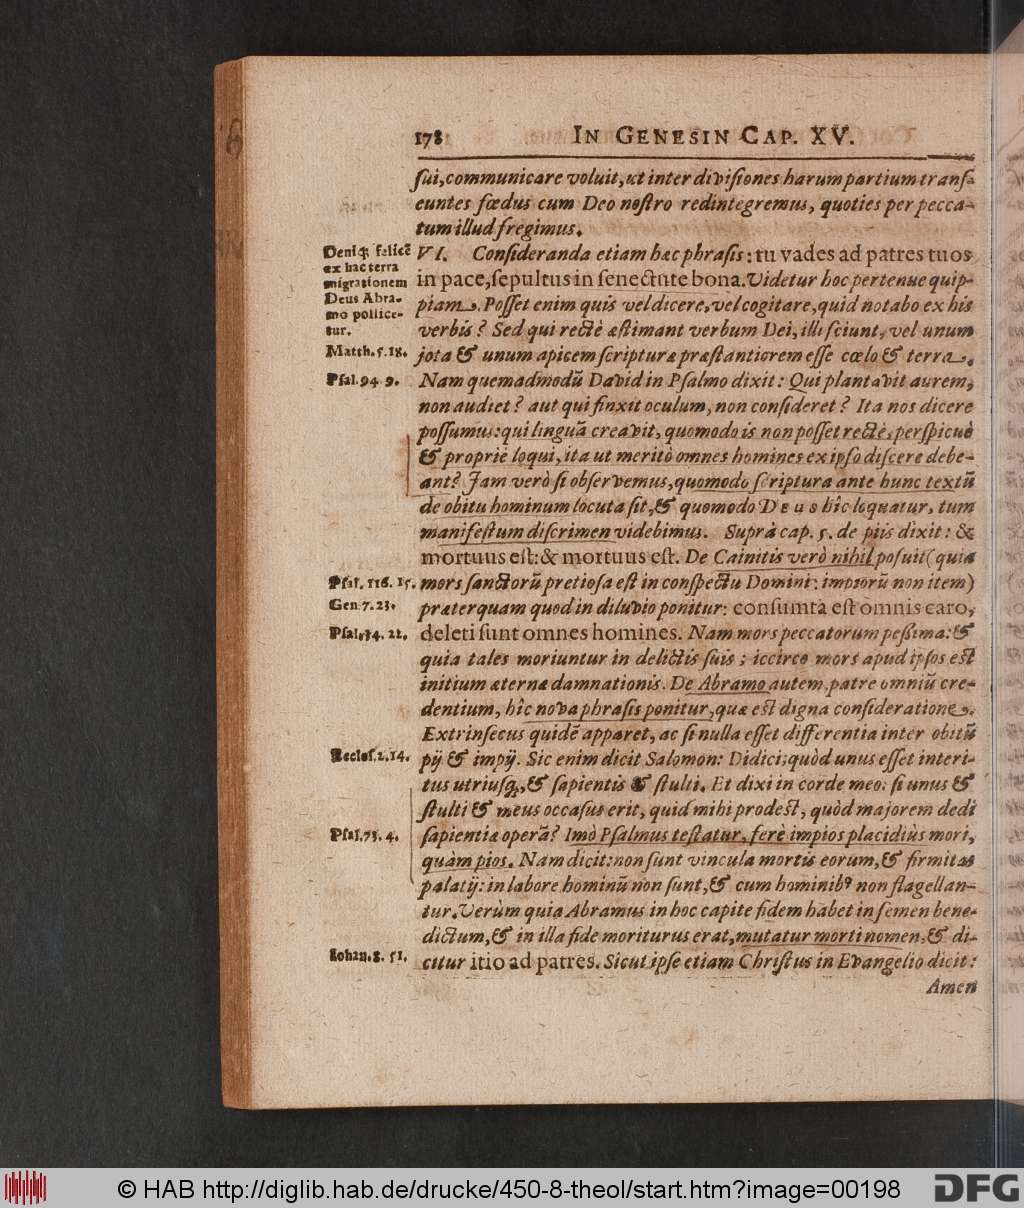 178 IN GENESIN CAP. XV.
ſui, communicare voluit, ut inter diviſiones harum partium tranſ-
euntes fœdus cum Deo noſtro redintegremus, quoties per pecca-
tum illud fregimus.
Deniq; felicē
ex hac terra
migrationem
Deus Abra-
mo pollice-
tur.
VI. Conſideranda etiam hæc phraſis: tu vades ad patres tuos
in pace, ſepultus in ſenectute bona. Videtur hoc pertenue quip-
piam. Poſſet enim quis vel dicere, vel cogitare, quid notabo ex his
verbis? Sed qui rectè æſtimant verbum Dei, illi ſciunt, vel unum
Matth. 5. 18.
jota & unum apicem ſcripturæ præſtantiorem eſſe cœlo & terra.
Pſal. 94 9.
Nam quemadmodū David in Pſalmo dixit: Qui plantavit aurem,
non audiet? aut qui finxit oculum, non conſideret? Ita nos dicere
poſſumus: qui linguā creavit, quomodo is non poſſet rectè, perſpicuè
& propriè loqui, ita ut meritò omnes homines ex ipſo diſcere debe-
ant? Jam verò ſi obſervemus, quomodo ſcriptura ante hunc textū
de obitu hominum locuta ſit, & quomodo DEUS hîc loquatur, tum
manifeſtum diſcrimen videbimus. Suprà cap. 5. de piis dixit: &
mortuus eſt: & mortuus eſt. De Cainitis verò nihil poſuit (quia
Pſal. 116. 15.
mors ſanctorū pretioſa eſt in conſpectu Domini: impiorū non item)
Gen. 7. 23.
præterquam quod in diluvio ponitur: conſumta eſt omnis caro,
Pſal. 34. 22.
deleti ſunt omnes homines. Nam mors peccatorum peſſima: &
quia tales moriuntur in delictis ſuis; iccirco mors apud ipſos eſt
initium æternæ damnationis. De Abramo autem, patre omniū cre-
dentium, hîc nova phraſis ponitur, quæ eſt digna conſideratione.
Extrinſecus quidē apparet, ac ſi nulla eſſet differentia inter obitū
Eccleſ. 2. 14.
pij & impij. Sic enim dicit Salomon: Didici; quòd unus eſſet interi-
tus utriuſq;, & ſapientis & ſtulti. Et dixi in corde meo: ſi unus &
ſtulti & meus occaſus erit, quid mihi prodeſt, quòd majorem dedi
Pſal. 73. 4.
ſapientiæ operā? Imò Pſalmus teſtatur, ferè impios placidiùs mori,
quàm pios. Nam dicit: non ſunt vincula mortis eorum, & firmitas
palatij: in labore hominū non ſunt, & cum hominibꝰ non flagellan-
tur. Verùm quia Abramus in hoc capite fidem habet in ſemen bene-
dictum, & in illa fide moriturus erat, mutatur morti nomen, & di-
Iohan. 8. 51.
citur itio ad patres. Sicut ipſe etiam Chriſtus in Evangelio dicit:
Amen
© HAB http://diglib.hab.de/drucke/450-8-theol/start.htm?image=00198
DFG